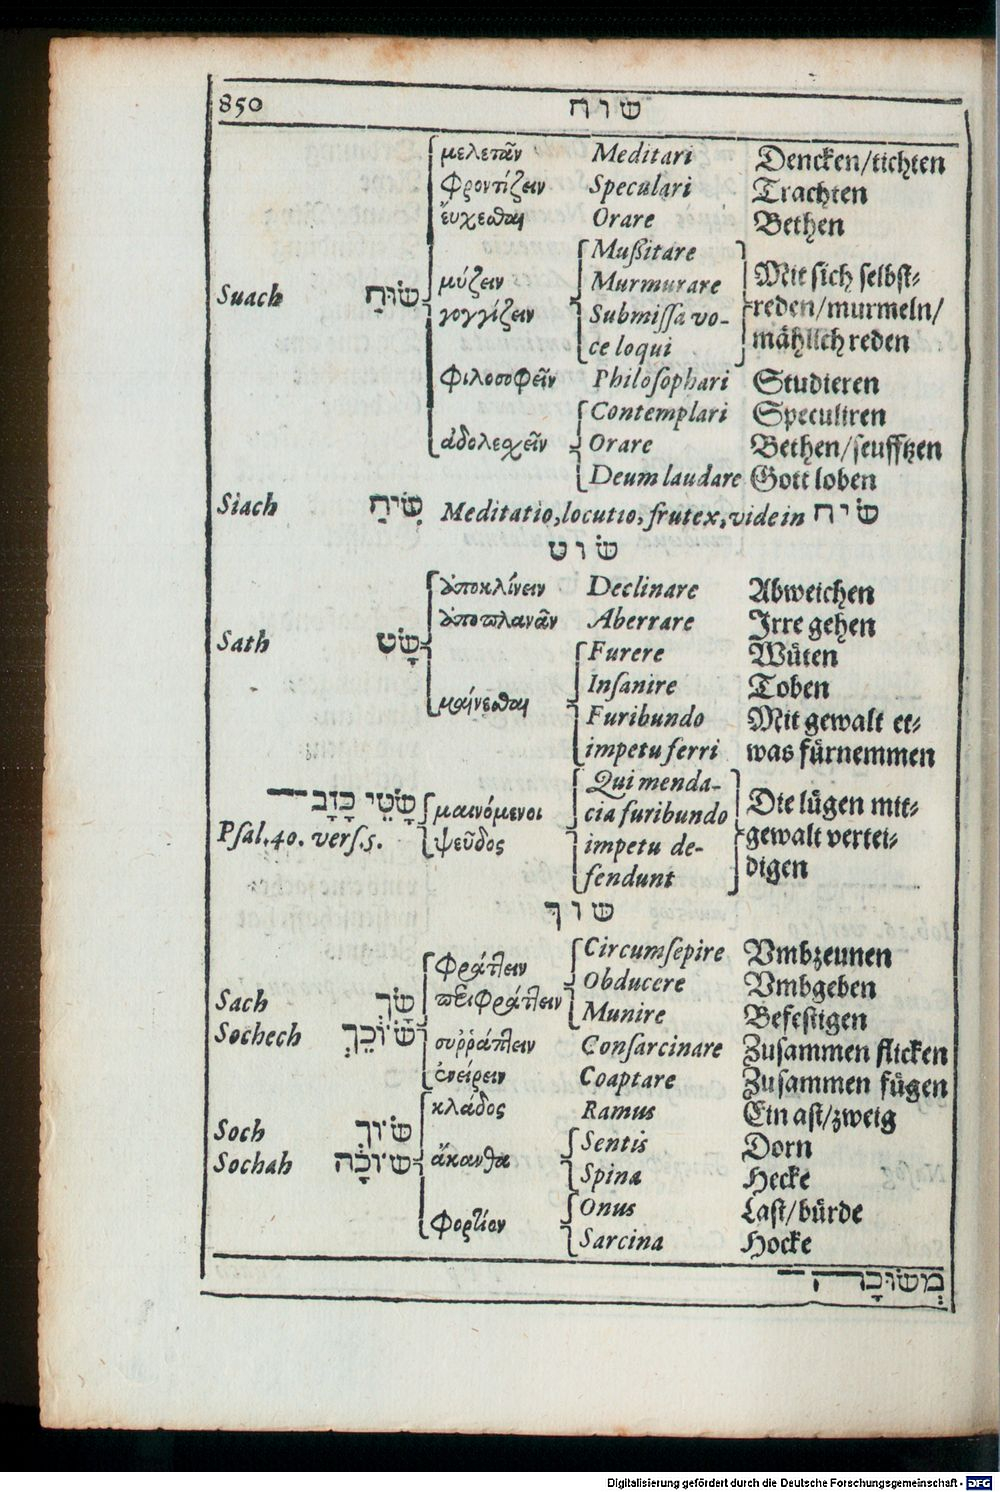 850 שׂוח
μελετᾶν Meditari Dencken/tichten
φροντίζειν Speculari Trachten
ἔυχεσθαι Orare Bethen
Mußitare
μύζειν Murmurare Mit sich selbst-
Suach שׂוּחַ γογγίζειν Submissa vo- reden/murmeln/
ce loqui mählich reden
φιλοσοφεῖν Philosophari Studieren
Contemplari Speculiren
ἀδολεχεῖν Orare Bethen/seufftzen
Deum laudare Gott loben
Siach שִׂיחַ Meditatio, locutio, frutex, vide in שׂיח
שׂוט
ἀποκλίνειν Declinare Abweichen
ἀποπλανᾶν Aberrare Irre gehen
Sath שָׂט Furere Wüten
Insanire Toben
μαίνεσθαι Furibundo Mit gewalt et-
impetu ferri was fürnemmen
שָׂטֵי כָזָב Qui menda-
μαινόμενοι cia furibundo Die lügen mit-
Psal. 40. vers. 5. ψεῦδος impetu de- gewalt vertei-
fendunt digen
שׂוך
φράττειν Circumsepire Vmbzeunen
Sach שָׂךְ περιφράττειν Obducere Vmbgeben
Munire Befestigen
Sochech שׂוֹכֵךְ συῤῥάπτειν Consarcinare Zusammen flicken
ἐνείρειν Coaptare Zusammen fügen
κλάδος Ramus Ein ast/zweig
Soch שׂוֹךְ Sentis Dorn
Sochah שׂוֹכָה ἄκανθα Spina Hecke
Onus Last/bürde
φορτίον Sarcina Hocke
מְשׂוּכָה